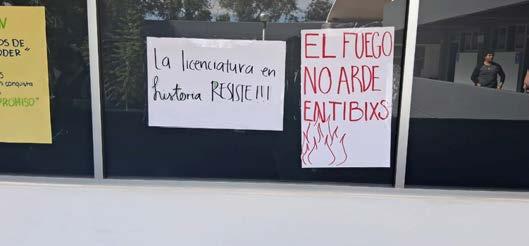 N
OS DE
ODER"
conquista
PROMISO"
La licenciatura en
historia RESISTE!!!
EL FUEGO
NO ARDE
EN TIBIXS